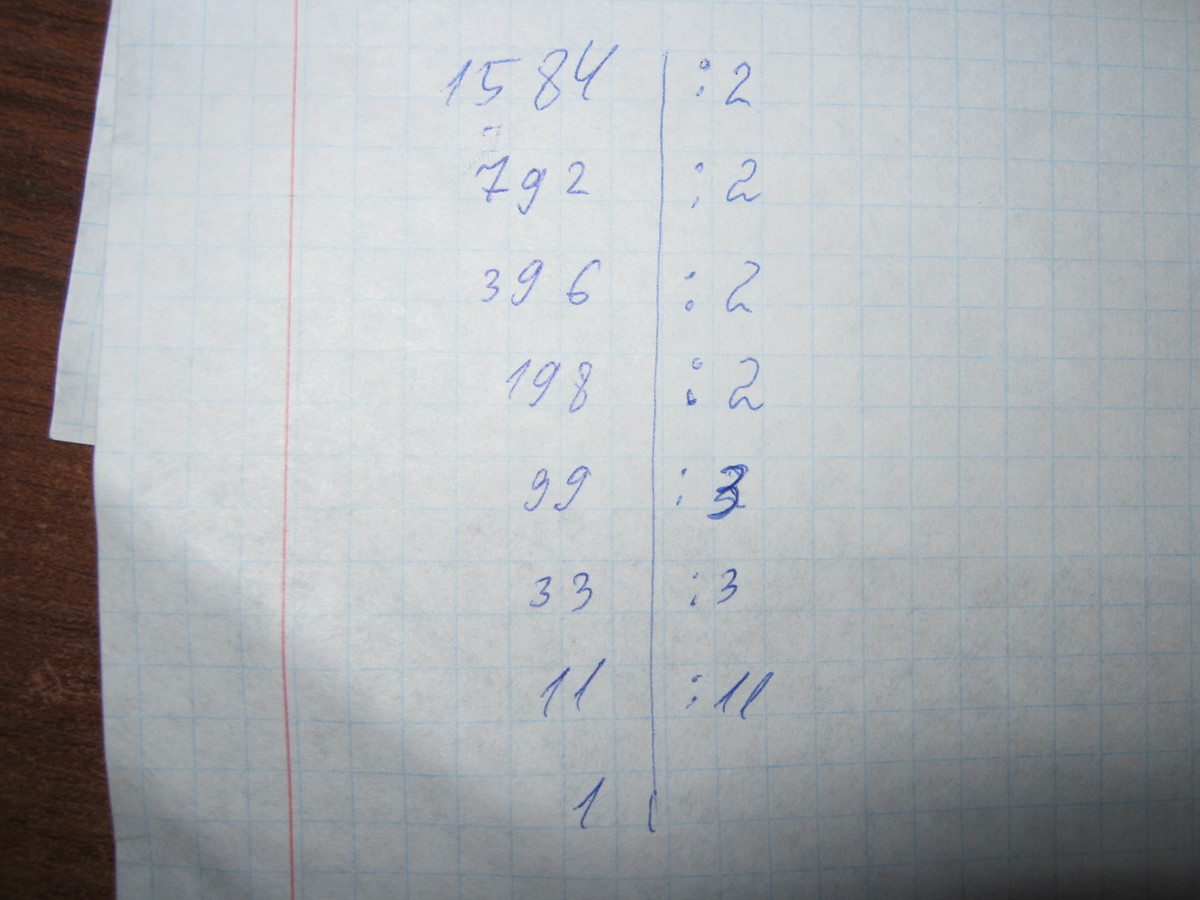 1584 : 2
792 : 2
396 : 2
198 : 2
99 : 3
33 : 3
11 : 11
1